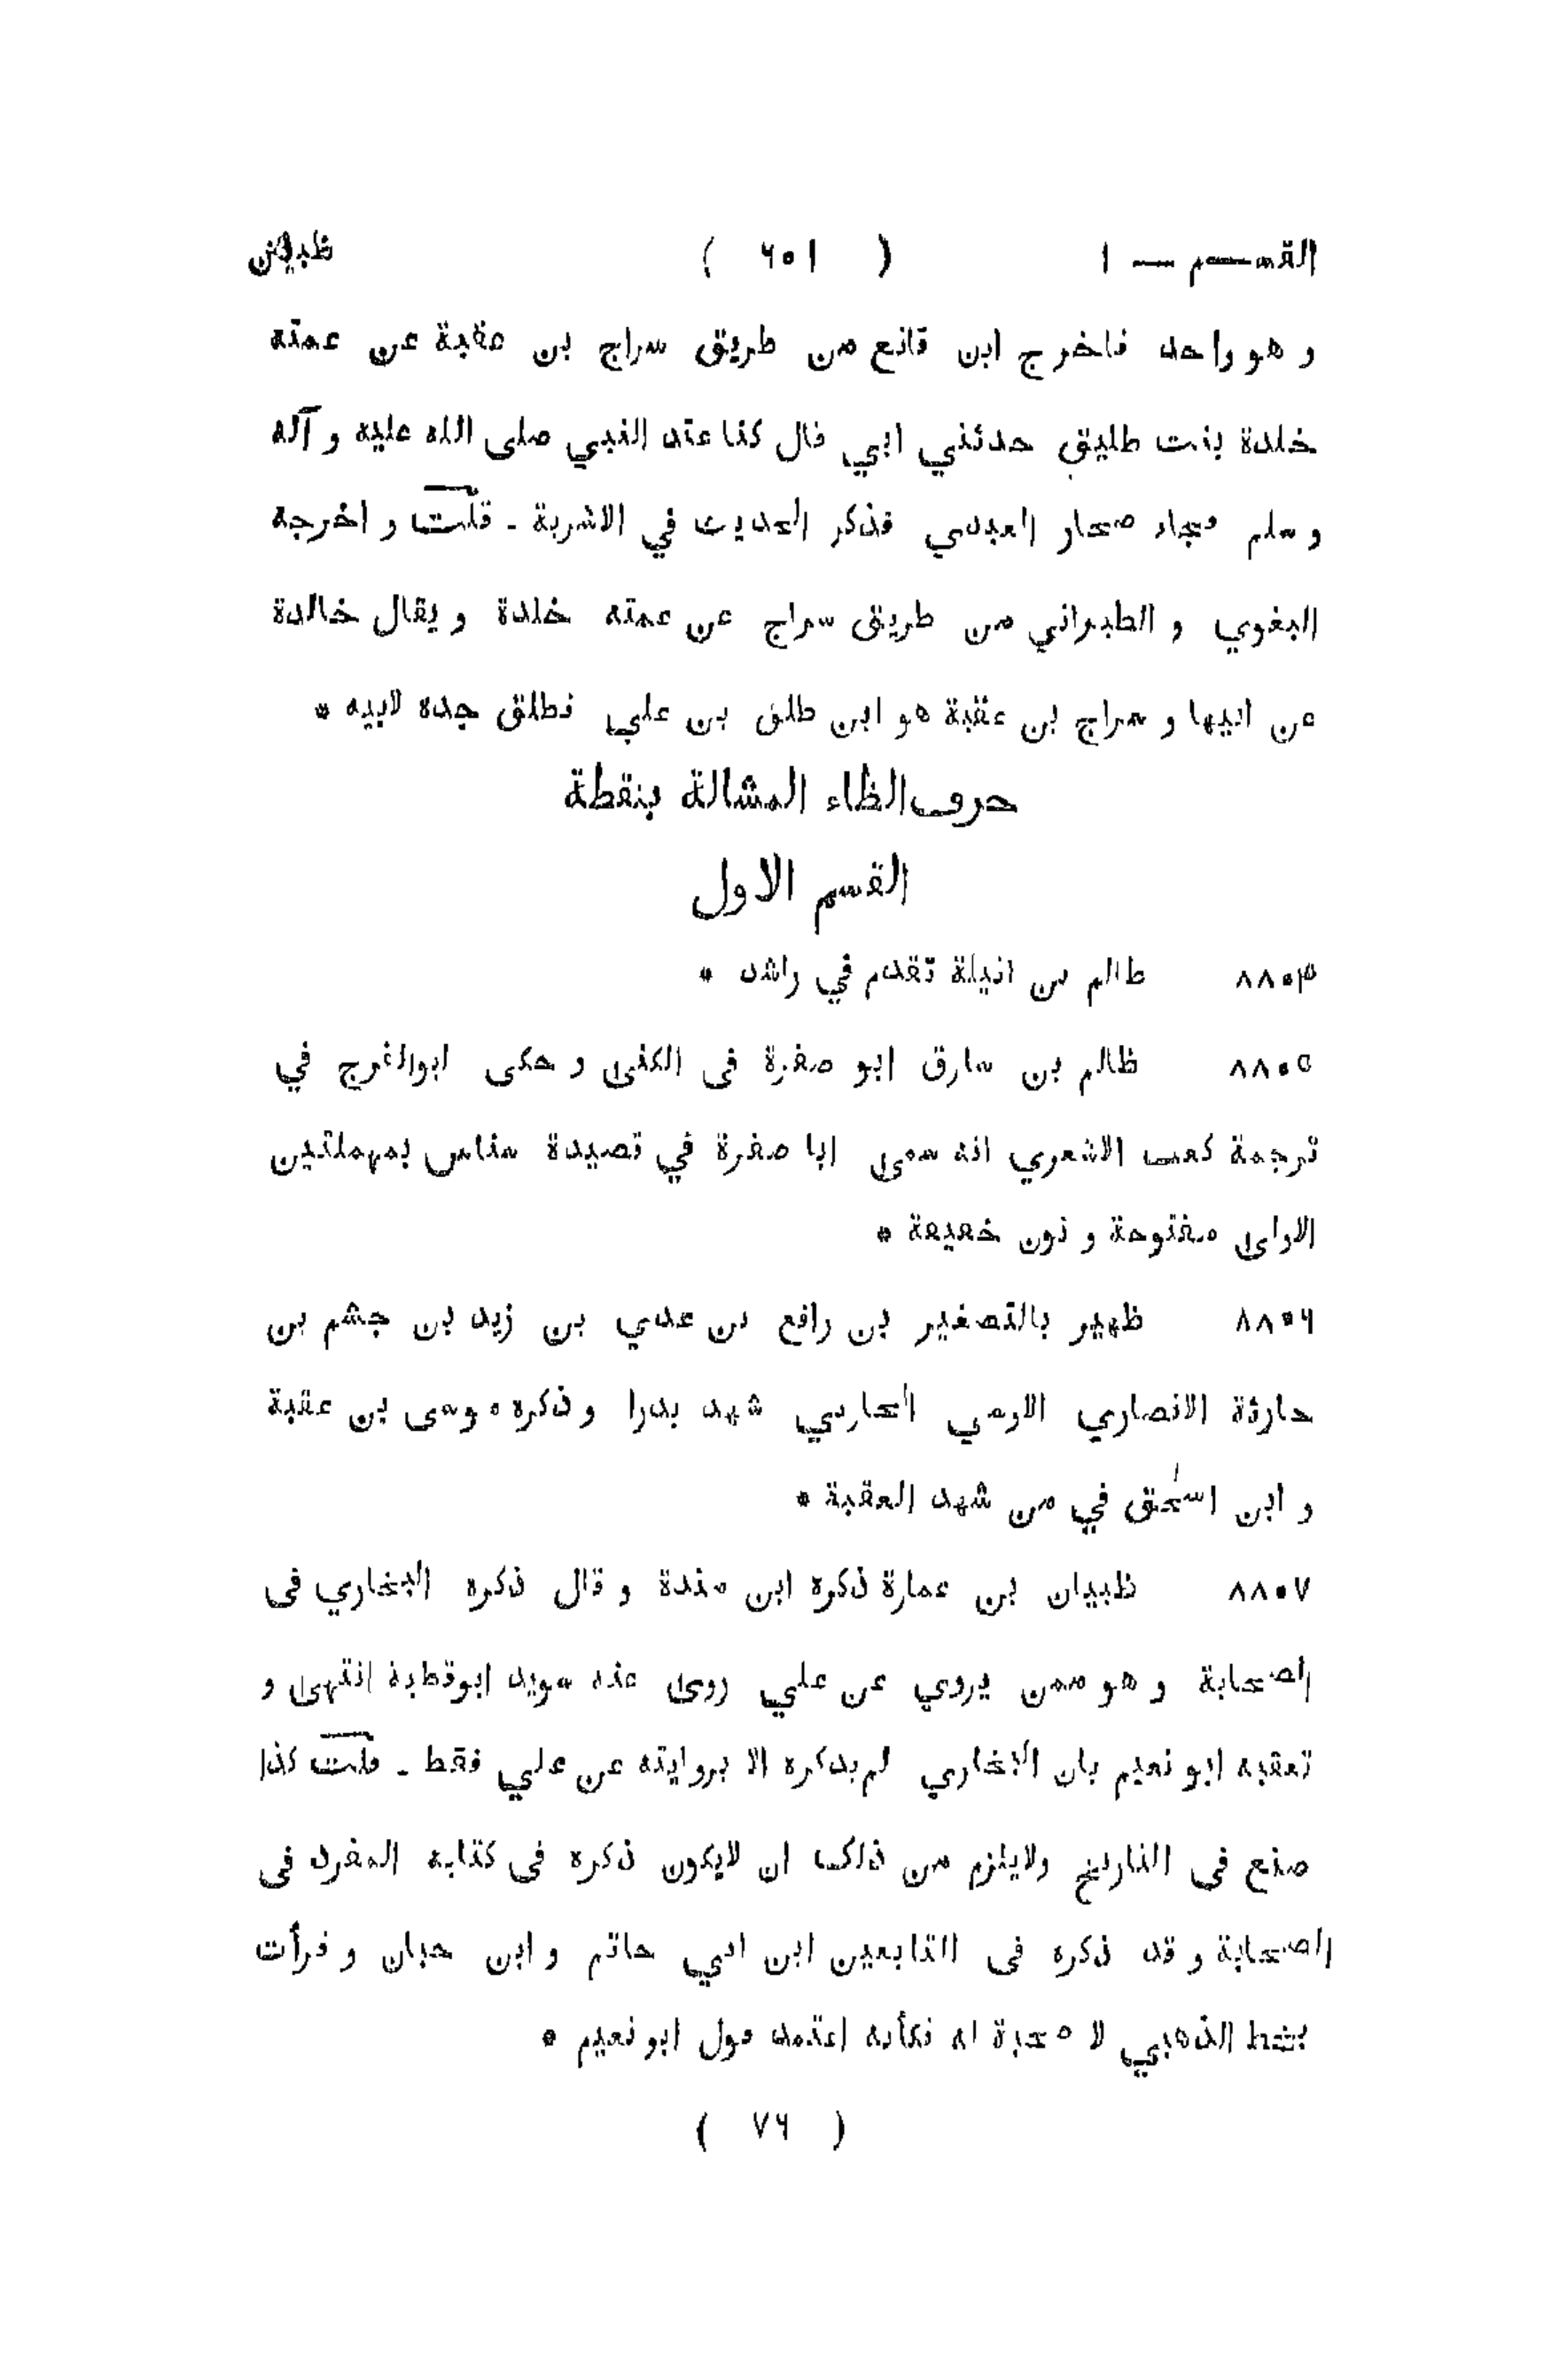 القسم — ١ ( ٦٠١ ) ظبيان
و هو واحد فاخرج ابن قانع من طريق سراج بن عقبة عن عمته
خلدة بنت طليق حدثني ابي قال كنا عند النبي صلى الله عليه و آله
و سلم فجاء صحار العبدي فذكر الحديث في الاشربة - قلت و اخرجه
البغوي و الطبراني من طريق سراج عن عمته خلدة و يقال خالدة
عن ابيها و سراج بن عقبة هو ابن طلق بن علي فطلق جده لابيه *
حرف الظاء المشالة بنقطة
القسم الاول
٨٨٠٤ ظالم بن اثيلة تقدم في راشد *
٨٨٠٥ ظالم بن سارق ابو صفرة فى الكنى و حكى ابوالفرج في
ترجمة كعب الاشعري انه سمى ابا صفرة في قصيدة سناس بمهملتين
الاولى مفتوحة و نون خفيفة *
٨٨٠٦ ظهير بالتصغير بن رافع بن عدي بن زيد بن جشم بن
حارثة الانصاري الاوسي الحارثي شهد بدرا و ذكره موسى بن عقبة
و ابن اسحق في من شهد العقبة *
٨٨٠٧ ظبيان بن عمارة ذكره ابن مندة و قال ذكره البخاري فى
الصحابة و هو ممن يروي عن علي روى عنه سويد ابوقطبة انتهى و
تعقبه ابو نعيم بان البخاري لم يذكره الا بروايته عن علي فقط - قلت كذا
صنع فى التاريخ ولايلزم من ذلك ان لايكون ذكره فى كتابه المفرد فى
الصحابة و قد ذكره فى التابعين ابن ابي حاتم و ابن حبان و قرأت
بخط الذهبي لا صحبة له فكأنه اعتمد قول ابو نعيم *
( ٧٦ )